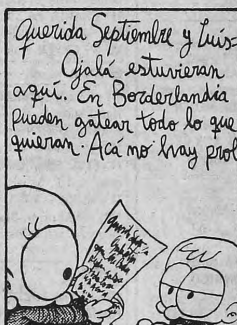 Querida Septiembre y Luis=
Ojalá estuvieran
aquí. En Borderlandia
pueden gatear todo lo que
quieran. Acá no hay prol